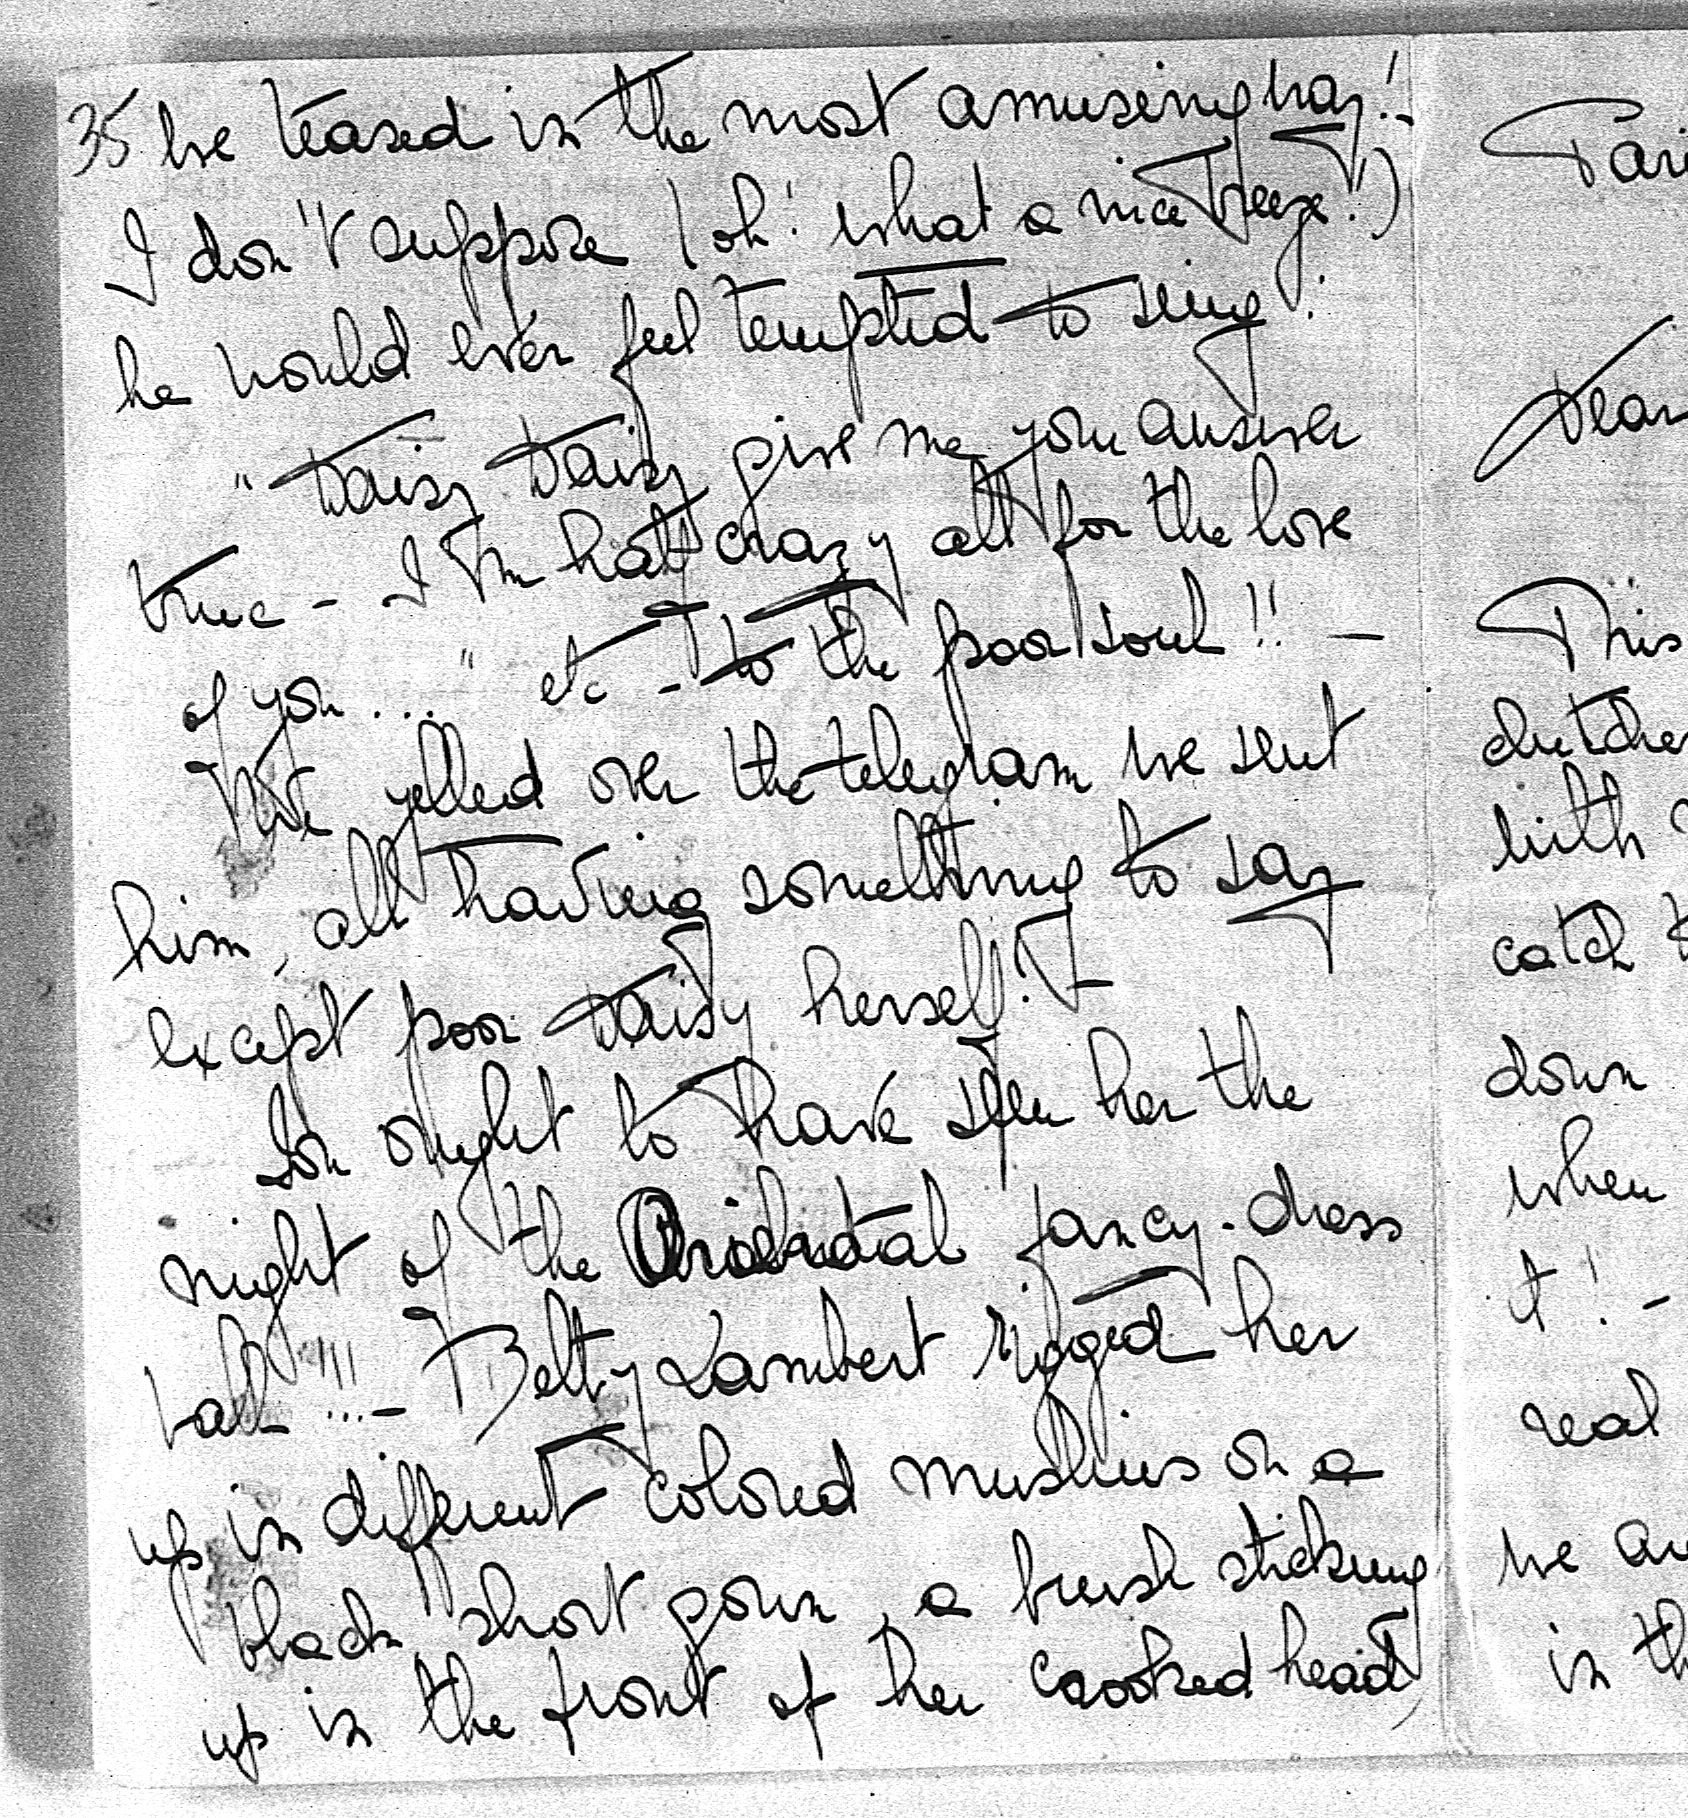 35 we teased in the most amusing way!
I don't suppose (oh! what a nice breeze!)
he would ever feel tempted to sing:
"Daisy Daisy give me your answer
true - I'm half crazy all for the love
of you ... " etc - to the poor soul!! -
We yelled over the telegram we sent
him, all having something to say
except poor Daisy herself! -
You ought to have seen her the
night of the Oriental fancy-dress
ball !!! - Betty Lambert rigged her
up in different colored muslins on a
black short gown, a brush sticking
up in the front of her crooked head,
Pari
Dear
This
clutches
with
catch
down
when
it! -
real
we
in th